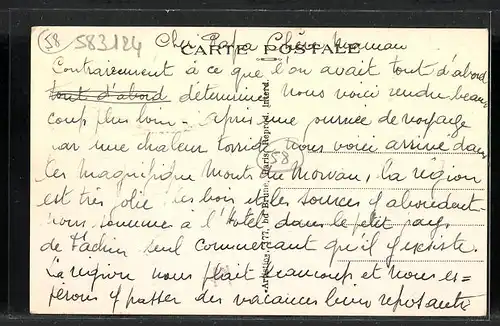 58 583124 Cher Papa Chère maman
CARTE POSTALE
Contrairement à ce que l'on avait tout d'abord
tout d'abord déterminé nous voici rendu beau
coup plus loin - après une journée de voyage
par une chaleur torride nous voici arrivé dans
les magnifique Monts du Morvan, la région
est très jolie les bois et les sources y abondent -
nous sommes à l'Hotel dans le petit pays
de Fachin seul commerçant qu'il y existe.
La région nous plait beaucoup et nous es=
pérons y passer des vacances bien reposante
58
Artistic, 177, bd Brune, Paris. Reprod. Interd.